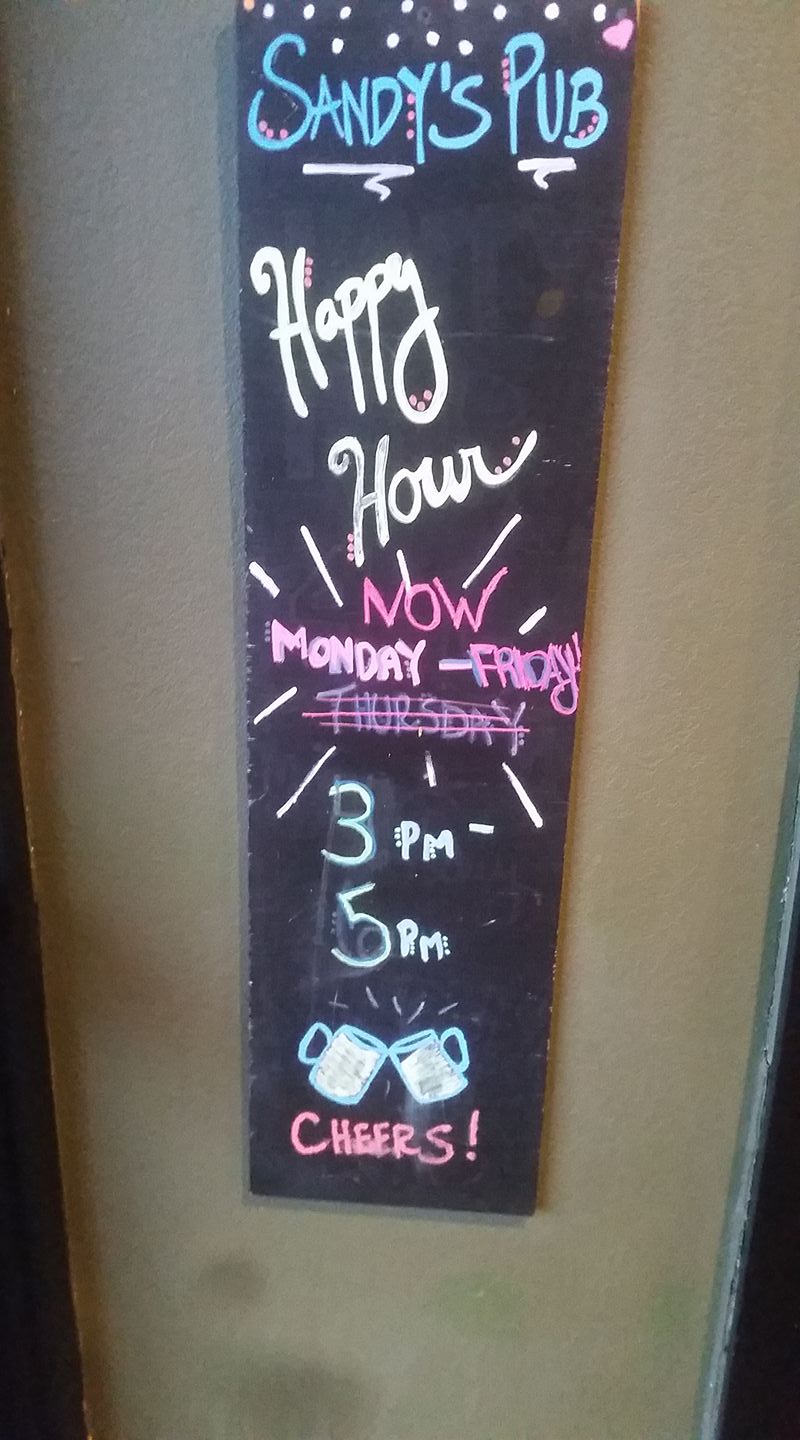 SANDY'S PUB
Happy
Hour
NOW
MONDAY - FRIDAY!
THURSDAY
3 PM -
5 PM
CHEERS!